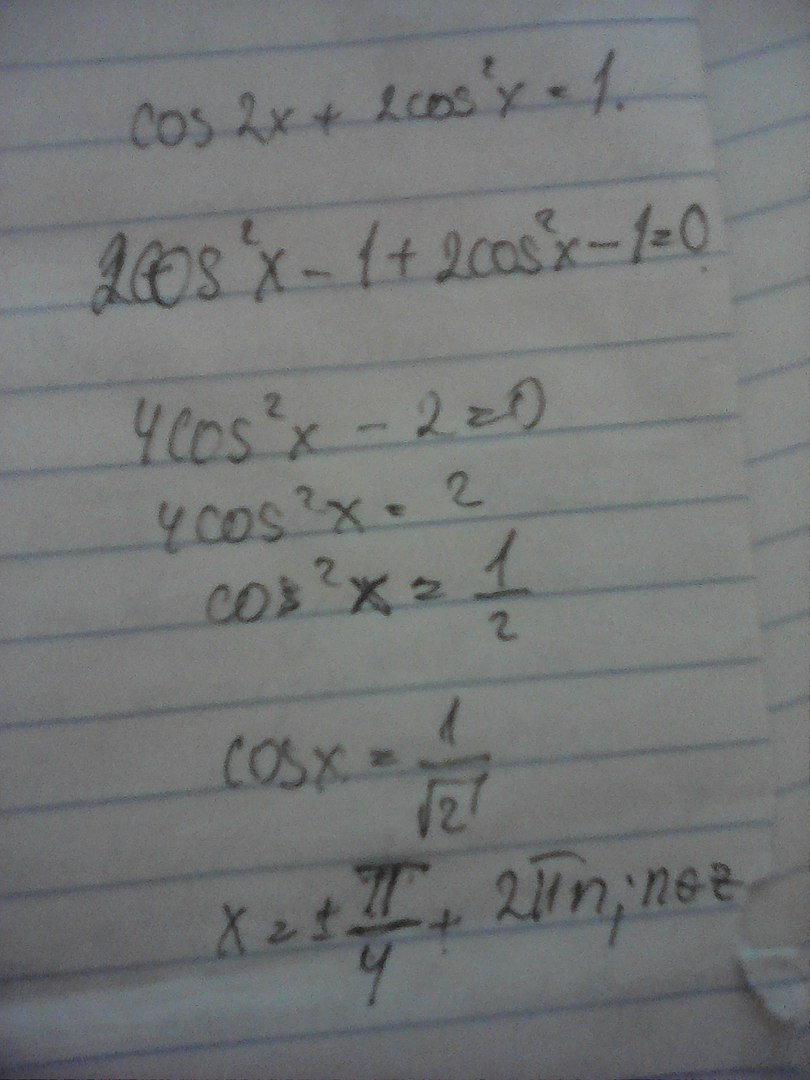 cos 2x + 2cos²x = 1.
2cos²x - 1 + 2cos²x - 1 = 0
4cos²x - 2 = 0
4cos²x = 2
cos²x = 1/2
cosx = 1/√2
x = ± π/4 + 2πn; n∈z